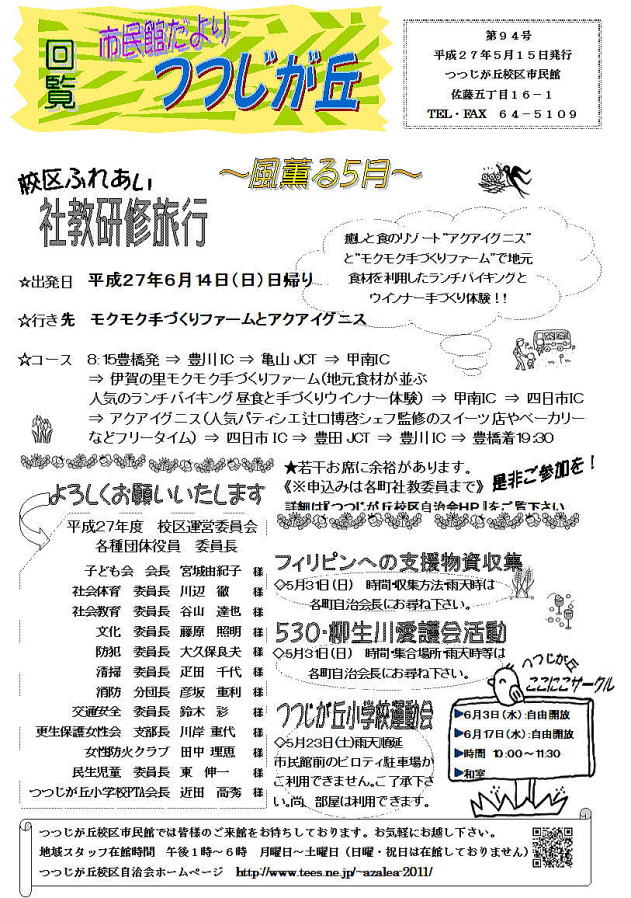 回覧
市民館だより
つつじが丘
第94号
平成27年5月15日発行
つつじが丘校区市民館
佐藤五丁目16-1
TEL・FAX 64-5109
～風薫る5月～
校区ふれあい
社教研修旅行
癒しと食のリゾート"アクアイグニス"
と"モクモク手づくりファーム"で地元
食材を利用したランチバイキングと
ウインナー手づくり体験!!
☆出発日 平成27年6月14日(日)日帰り
☆行き先 モクモク手づくりファームとアクアイグニス
☆コース 8:15豊橋発 ⇒ 豊川IC ⇒ 亀山JCT ⇒ 甲南IC
⇒ 伊賀の里モクモク手づくりファーム(地元食材が並ぶ
人気のランチバイキング昼食と手づくりウインナー体験) ⇒ 甲南IC ⇒ 四日市IC
⇒ アクアイグニス(人気パティシエ辻口博啓シェフ監修のスイーツ店やベーカリー
などフリータイム) ⇒ 四日市IC ⇒ 豊田JCT ⇒ 豊川IC ⇒ 豊橋着19:30
★若干お席に余裕があります。
《※申込みは各町社教委員まで》
是非ご参加を!
詳細は『つつじが丘校区自治会HP』をご覧下さい
よろしくお願いいたします
平成27年度 校区運営委員会
各種団体役員 委員長
子ども会 会長 宮城由紀子 様
社会体育 委員長 川辺 徹 様
社会教育 委員長 谷山 達也 様
文化 委員長 藤原 照明 様
防犯 委員長 大久保良夫 様
清掃 委員長 疋田 千代 様
消防 分団長 彦坂 重利 様
交通安全 委員長 鈴木 彩 様
更生保護女性会 支部長 川岸 重代 様
女性防火クラブ 田中 理恵 様
民生児童 委員長 東 伸一 様
つつじが丘小学校PTA会長 近田 高秀 様
フィリピンへの支援物資収集
◇5月31日(日) 時間・収集方法・雨天時は
各町自治会長にお尋ね下さい。
530・柳生川愛護会活動
◇5月31日(日) 時間・集合場所・雨天時等は
各町自治会長にお尋ね下さい。
つつじが丘小学校運動会
◇5月23日(土)雨天順延
市民館前のピロティ駐車場が
ご利用できません。ご了承下さ
い。尚、部屋は利用できます。
つつじが丘
ここにこサークル
▶6月3日(水):自由開放
▶6月17日(水):自由開放
▶時間 10:00～11:30
▶和室
つつじが丘校区市民館では皆様のご来館をお待ちしております。お気軽にお越し下さい。
地域スタッフ在館時間 午後1時～6時 月曜日～土曜日(日曜・祝日は在館しておりません)
つつじが丘校区自治会ホームページ http://www.tees.ne.jp/~azalea-2011/